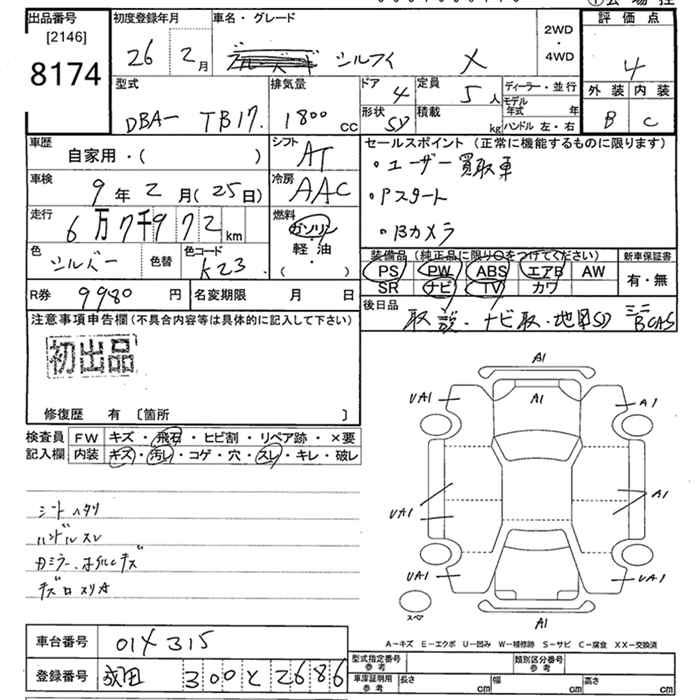 出品番号 [2146] 8174
初度登録年月 26 2月
車名・グレード シルフィ X
2WD・4WD
評価点 4
外装 B 内装 C
型式 DBA- TB17.
排気量 1800 cc
ドア 4
形状 SD
定員 5人
積載 kg
ディーラー・並行
モデル年式 年
ハンドル 左・右
車歴 自家用・( )
シフト AT
セールスポイント (正常に機能するものに限ります)
・ユーザー買取車
・Pスタート
・Bカメラ
車検 9年2月(25日)
冷房 AAC
走行 6万7千972km
燃料 ガソリン 軽・油 ・( )
色 シルバー 色替 色コード K23.
装備品 (純正品に限り○をつけてください) 新車保証書
PS PW ABS エアB AW 有・無
SR ナビ TV カワ
R券 9980円 名変期限 月 日
後日品 取説・ナビ取・地図SD ミニBCAS
注意事項申告欄 (不具合内容等は具体的に記入して下さい)
初出品
修復歴 有 〔箇所 〕
検査員記入欄 FW キズ・飛石・ヒビ割・リペア跡・×要
内装 キズ・汚レ・コゲ・穴・スレ・キレ・破レ
シートヘタリ
ハンドルスレ
カミラー、ホイルキズ
A1
UA1 A1 A1
UA1 A1
UA1
UA1 UA1
スペア A1
A-キズ E-エクボ U-凹み W-補修跡 S-サビ C-腐食 XX-交換済
車台番号 014315
登録番号 成田 300 と 2686
型式指定番号 参考 類別区分番号 参考
車庫証明用 参考 長さ cm 幅 cm 高さ cm